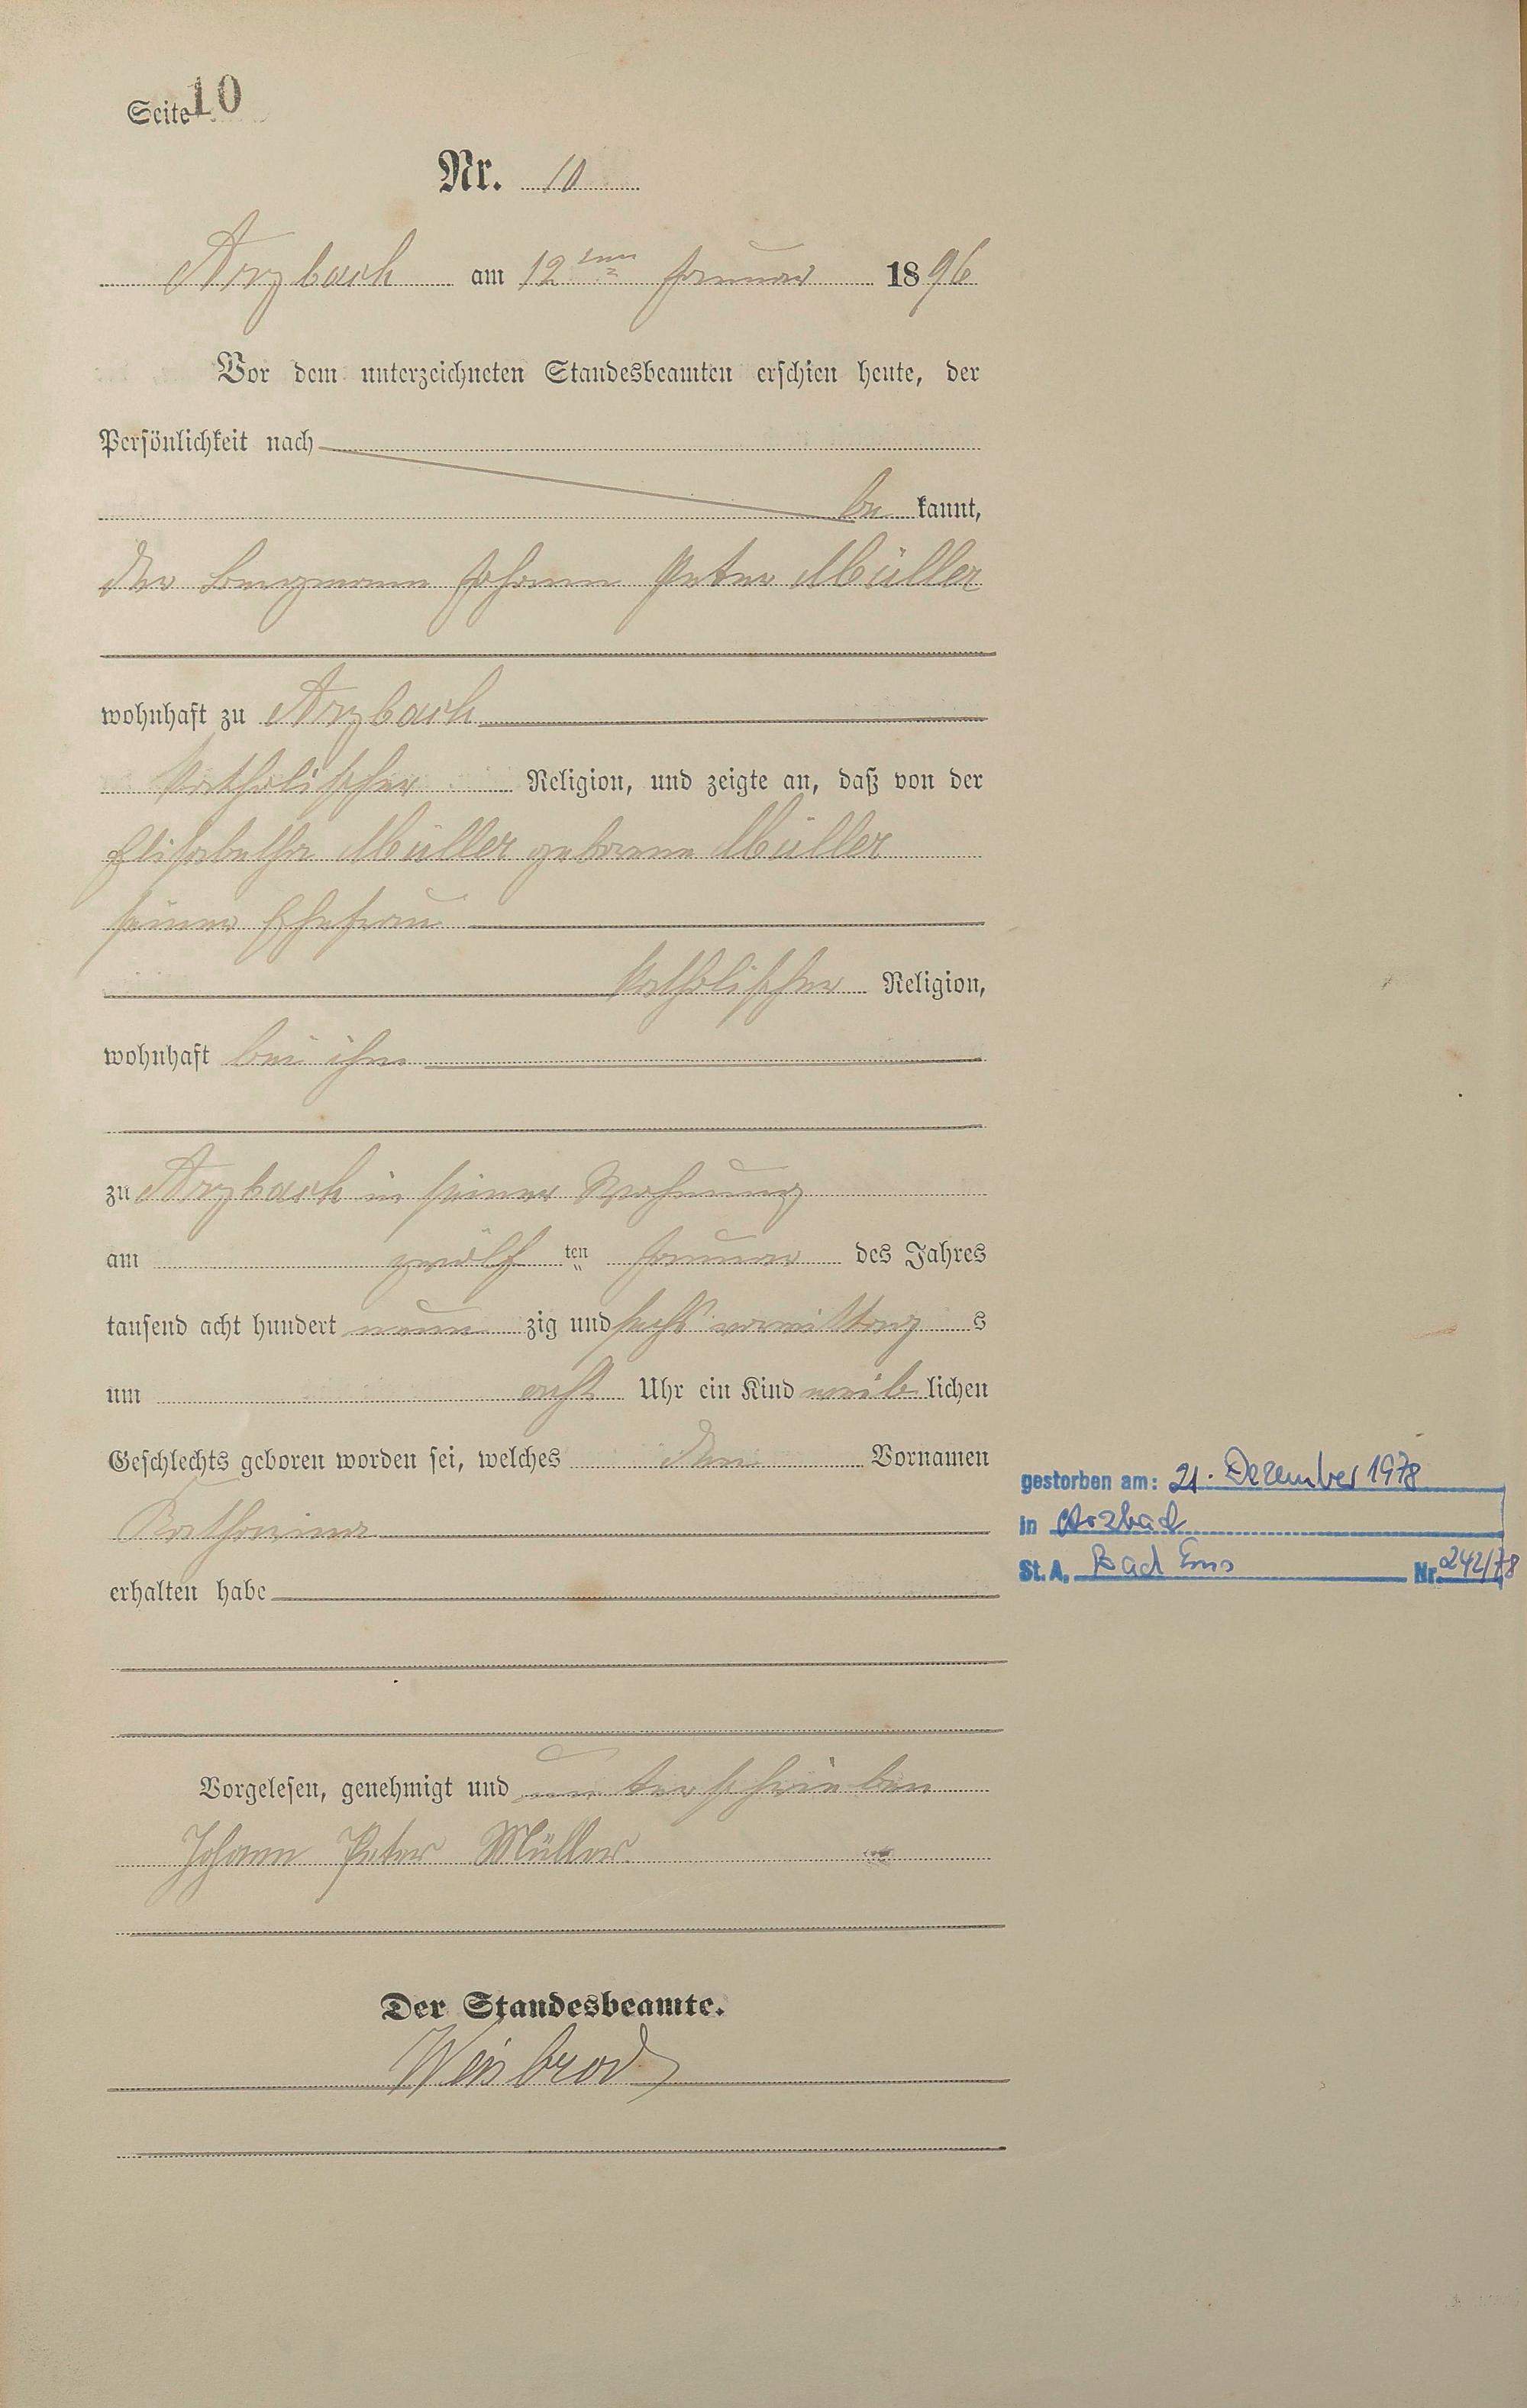 Seite 10
Nr. 10
Arzbach am 12ten Januar 1896
Vor dem unterzeichneten Standesbeamten erschien heute, der
Persönlichkeit nach
be kannt,
der Bergmann Johann Peter Müller
wohnhaft zu Arzbach
katholischer Religion, und zeigte an, daß von der
Elisabetha Müller geborene Müller
seiner Ehefrau
katholischer Religion,
wohnhaft bei ihm
zu Arzbach in seiner Wohnung
am zwölf ten Januar des Jahres
tausend acht hundert neun zig und sechs vormittag s
um acht Uhr ein Kind weib lichen
Geschlechts geboren worden sei, welches den Vornamen
Katharina
erhalten habe
gestorben am: 21. Dezember 1978
in Arzbach
St. A. Bad Ems Nr. 242/78
Vorgelesen, genehmigt und unterschrieben
Johann Peter Müller
Der Standesbeamte.
Weisbrod